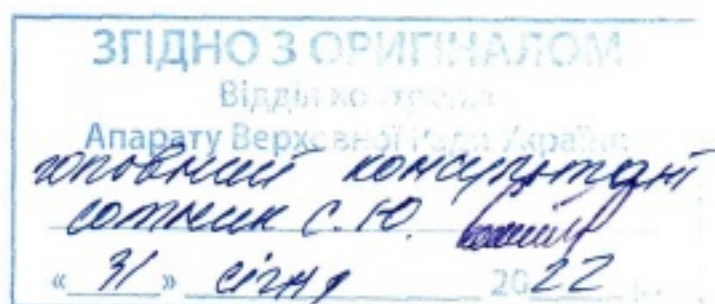 ЗГІДНО З ОРИГІНАЛОМ
Відділ контролю
Апарату Верховної Ради України
головний консультант
Сотник С.Ю.
« 31 » січня 2022 р.